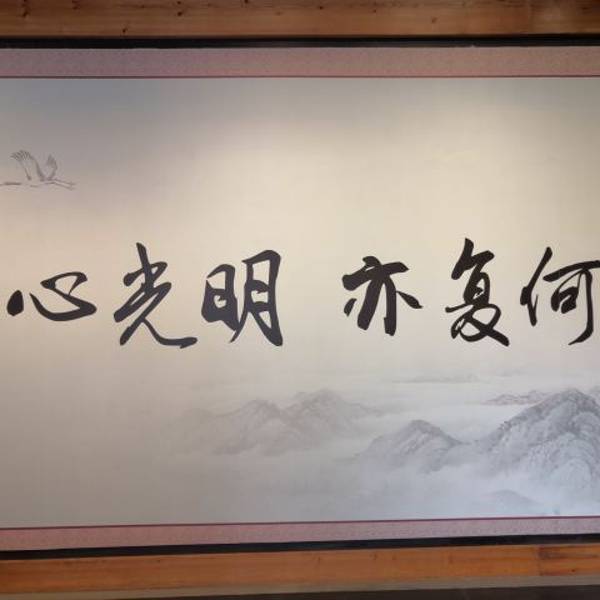 心光明 亦复何